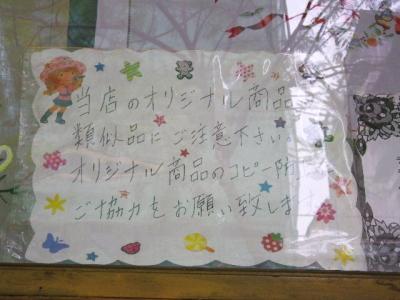 当店のオリジナル商品
類似品にご注意下さい。
オリジナル商品のコピー防
ご協力をお願い致しま